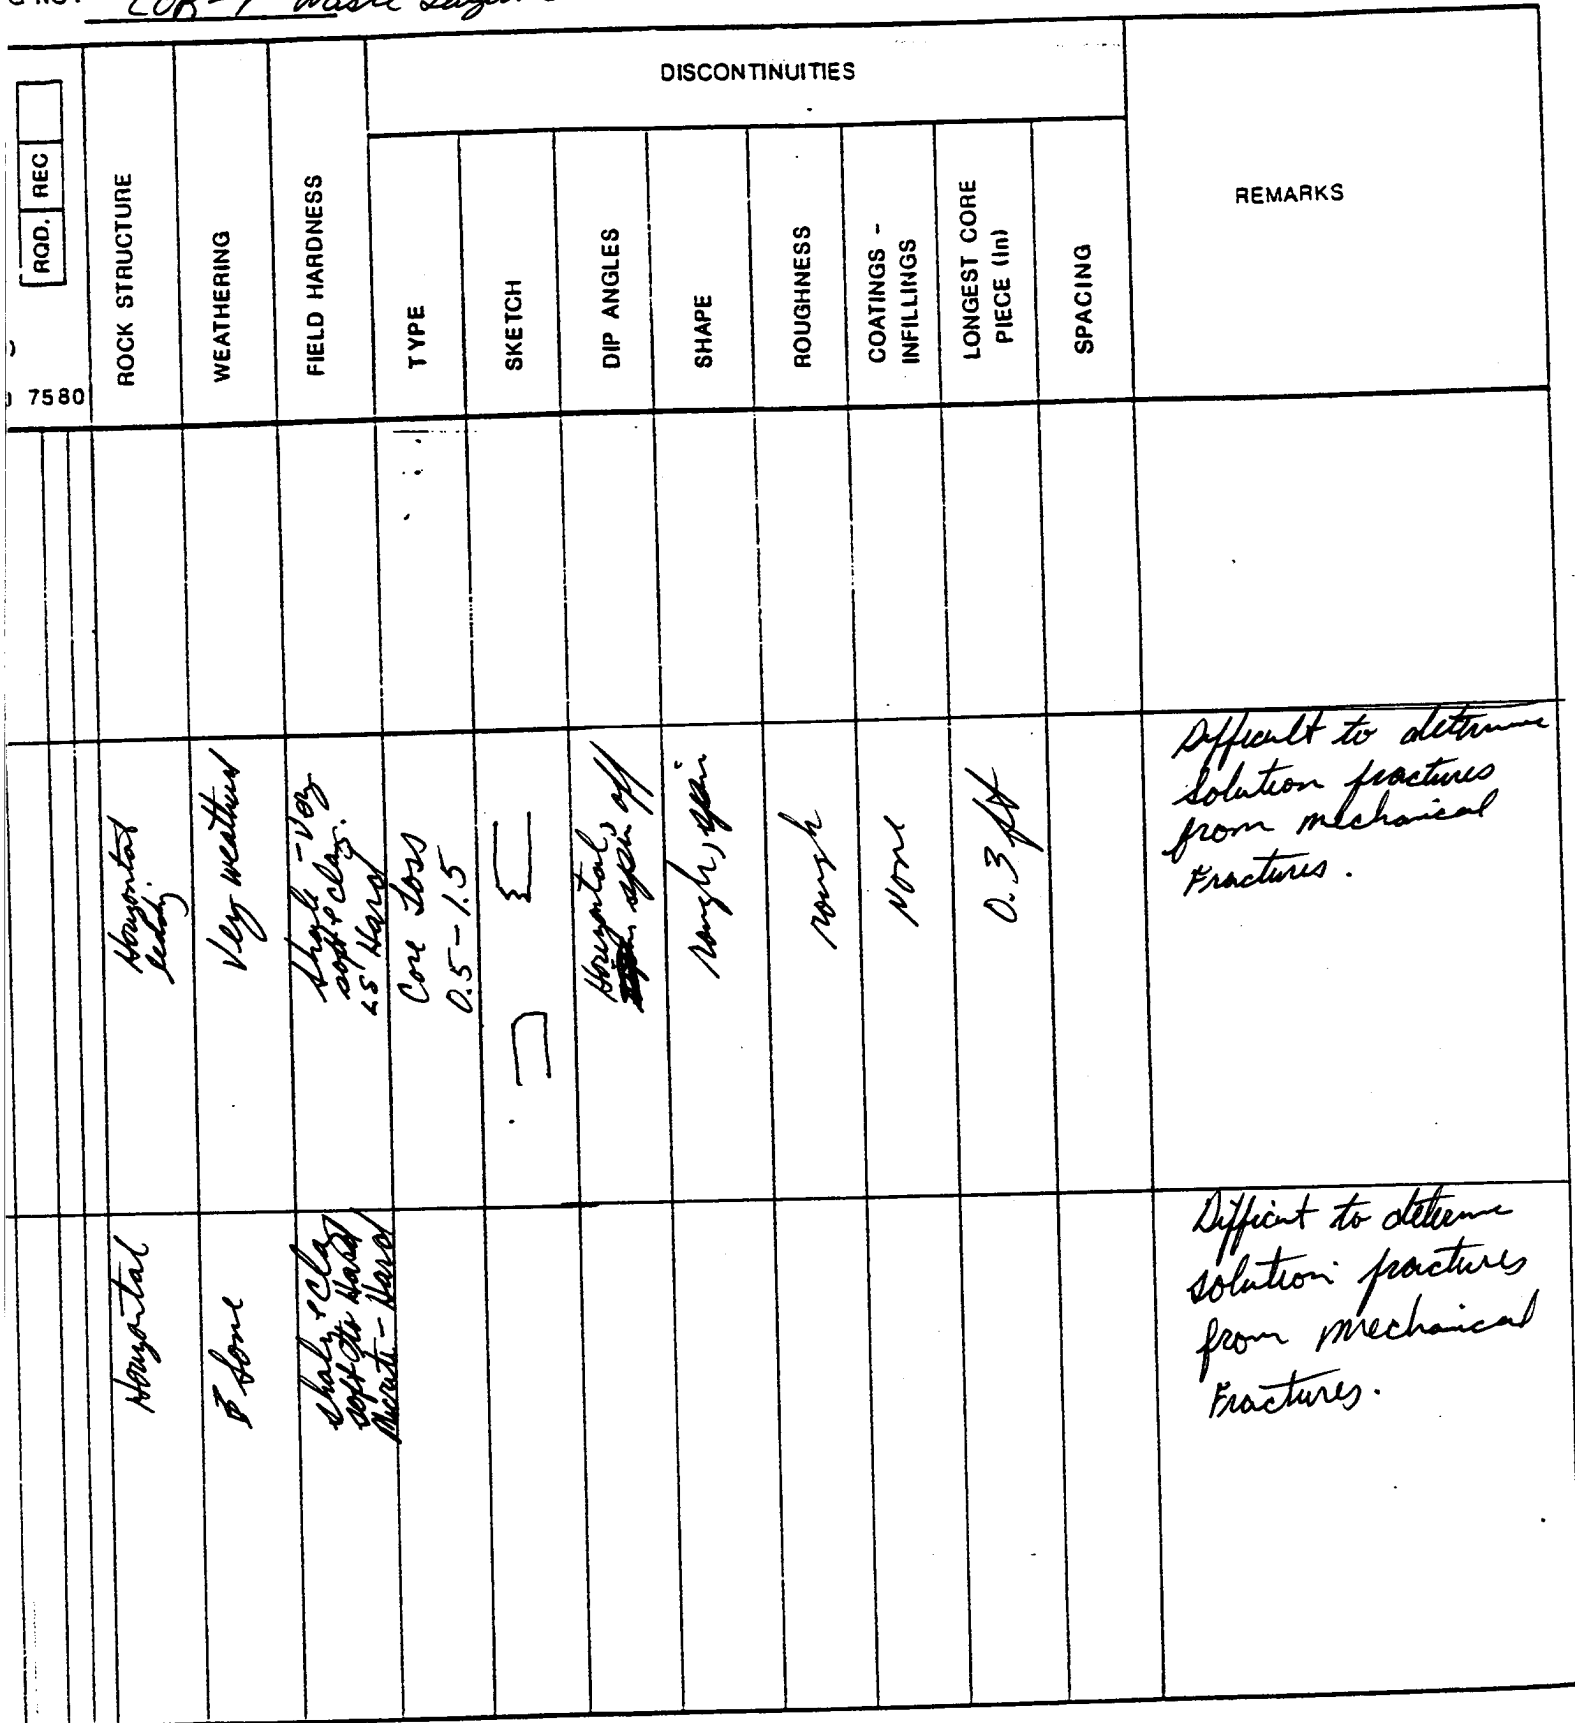 COR-1 Waste
DISCONTINUITIES
RQD. REC
7580
ROCK STRUCTURE
WEATHERING
FIELD HARDNESS
TYPE
SKETCH
DIP ANGLES
SHAPE
ROUGHNESS
COATINGS -
INFILLINGS
LONGEST CORE
PIECE (In)
SPACING
REMARKS
Horizontal
Very weathered
Shale - Very
soft & Clay.
LS Hard
Core Loss
0.5 - 1.5
Horizontal,
spin off
rough, spin
rough
None
0.3 ft
Difficult to determine
Solution fractures
from mechanical
Fractures.
Horizontal
Some
Shaly & Clay
soft to Hard
Micrite - Hard
Difficut to determe
solution fractures
from mechanical
Fractures.